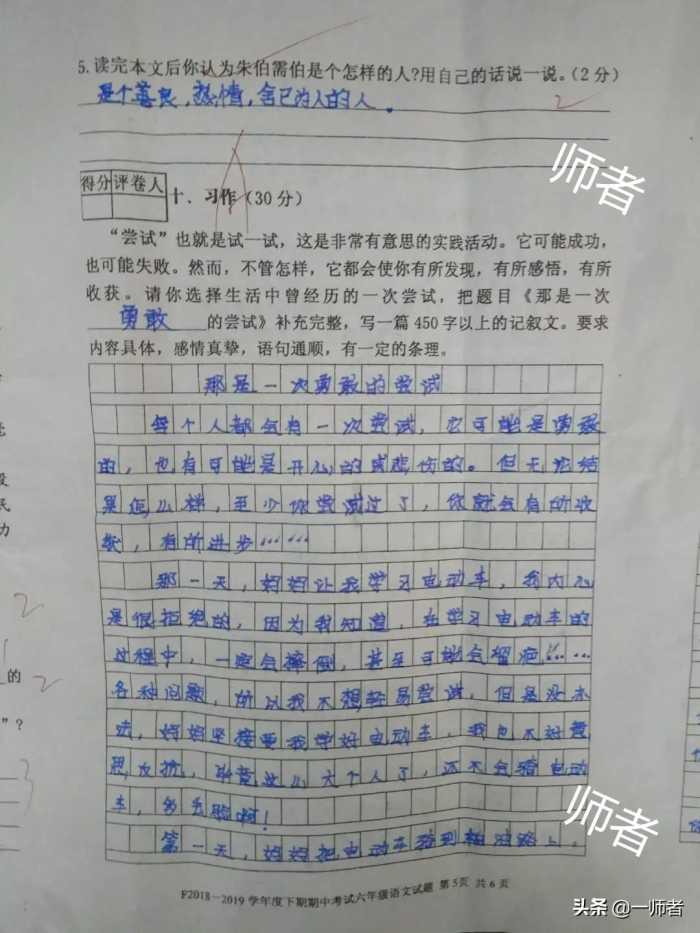 5.读完本文后你认为朱伯需伯是个怎样的人?用自己的话说一说。(2分)
是个善良,热情,舍己为人的人。
2
师者
得分 评卷人
十、习作(30分)
“尝试”也就是试一试,这是非常有意思的实践活动。它可能成功,
也可能失败。然而,不管怎样,它都会使你有所发现,有所感悟,有所
收获。请你选择生活中曾经历的一次尝试,把题目《那是一次
勇敢 的尝试》补充完整,写一篇450字以上的记叙文。要求
内容具体,感情真挚,语句通顺,有一定的条理。
那是一次勇敢的尝试
每个人都会有一次尝试,它可能是勇敢
的,也有可能是开心的或悲伤的。但无论结
果怎么样,至少你尝试过了,你就会有所收
获,有所进步……
那一天,妈妈让我学习电动车,我内心
是很拒绝的,因为我知道,在学习电动车的
过程中,一定会摔倒,甚至可能会留疤……
各种问题,所以我不想轻易尝试,但是没办
法,妈妈坚持要我学好电动车,我也不好意
思反抗,毕竟这么大个人了,还不会骑电动
车,多丢脸啊!
第一天,妈妈把电动车骑到柏油路上,
师者
2
的
2
”?
3
F2018-2019学年度下期期中考试六年级语文试题 第5页 共6页
头条 @一师者